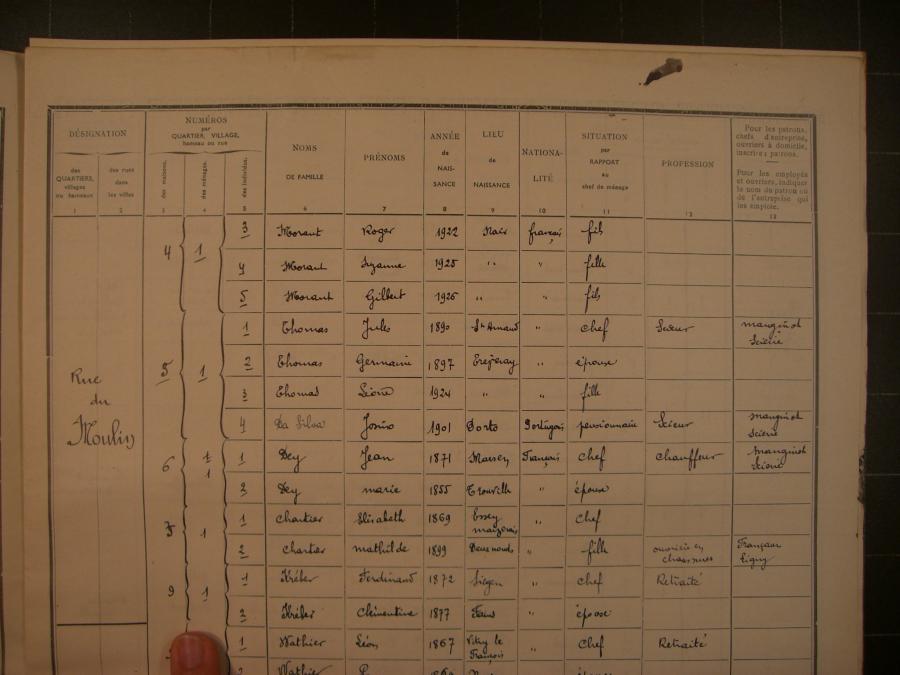 DÉSIGNATION
des QUARTIERS, villages ou hameaux
des rues dans les villes
NUMÉROS
par
QUARTIER, VILLAGE,
hameau ou rue
des maisons.
des ménages.
des individus.
NOMS
DE FAMILLE
PRÉNOMS
ANNÉE
de
NAIS-
SANCE
LIEU
de
NAISSANCE
NATIONA-
LITÉ
SITUATION
par
RAPPORT
au
chef de ménage
PROFESSION
Pour les patrons,
chefs d'entreprise,
ouvriers à domicile,
inscrire: patrons.
Pour les employés
et ouvriers, indiquer
le nom du patron ou
de l'entreprise qui
les emploie.
1 2 3 4 5 6 7 8 9 10 11 12 13
Rue
du
Moulin
4 1 3 Morant Roger 1922 français fils
4 Morant Suzanne 1925 " " fille
5 Morant Gilbert 1926 " " fils
5 1 1 Thomas Jules 1890 St Amand " chef Scieur manginot Scierie
2 Thomas Germaine 1897 " épouse
3 Thomas 1924 " " fille
4 Da Silva 1901 Porto Portugais pensionnaire Scieur manginot Scierie
6 1 1 1 Dey Jean 1871 Français chef chauffeur manginot Scierie
2 Dey marie 1855 Trouville " épouse
1 1 chartier Elisabeth 1869 Essey maizerais " chef
2 chartier mathilde 1899 " fille ouvrière en chaussures Ligny
9 1 1 Kréber Ferdinand 1872 Siegen " chef Retraité
2 Kréber Clémentine 1877 " épouse
1 Wathier Léon 1867 Vitry le François " Chef Retraité
2 Wathier